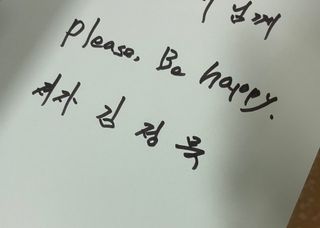 Please, Be happy.
저자 김 정 묵